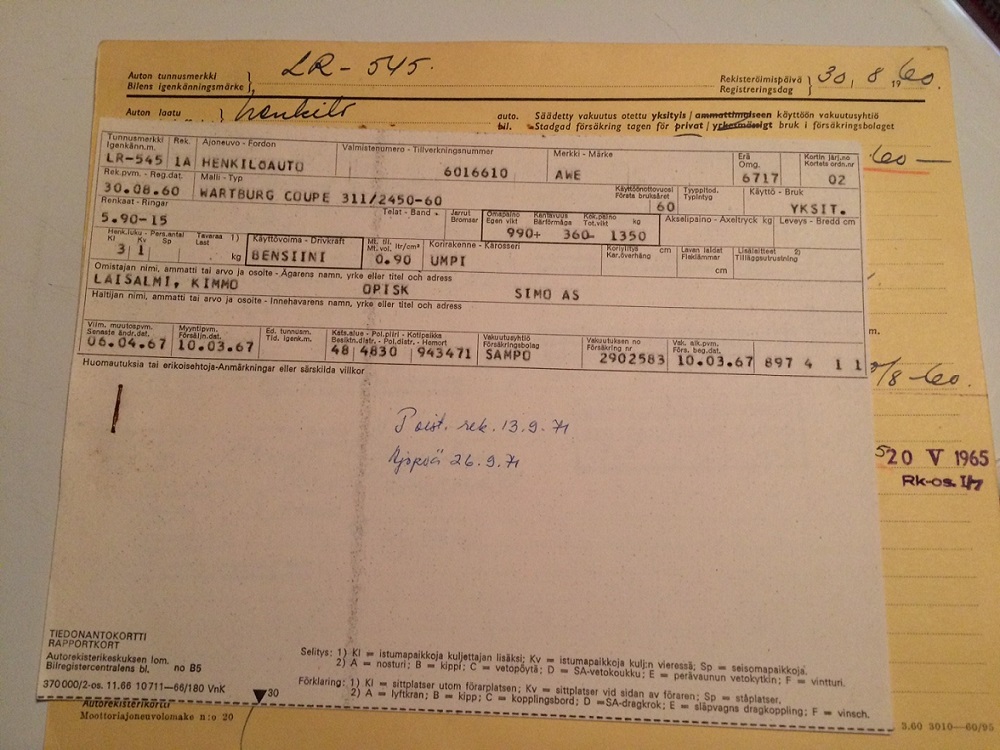 Auton tunnusmerkki
Bilens igenkänningsmärke
LR-545.
Rekisteröimispäivä
Registreringsdag
30, 8 1960.
Auton laatu
henkilö
auto.
bil.
Säädetty vakuutus otettu yksityis/ammattimaiseen käyttöön vakuutusyhtiö
Stadgad försäkring tagen för privat/yrkesmässigt bruk i försäkringsbolaget
60—
Tunnusmerkki Rek. Ajoneuvo - Fordon Valmistenumero - Tillverkningsnummer Merkki - Märke Erä Kortin järj.no
Igenkänn.m. Omg. Kortets ordn.nr
LR-545 1A HENKILOAUTO 6016610 AWE 6717 02
Rek.pvm. - Reg.dat. Malli - Typ Käyttöönottovuosi Tyyppitod. Käyttö - Bruk
Första bruksåret Typintyg
30.08.60 WARTBURG COUPE 311/2450-60 60 YKSIT.
Renkaat - Ringar Telat - Band + Jarrut Omapaino Kantavuus Kok.paino kg Akselipaino - Axeltryck kg Leveys - Bredd cm
Bromsar Egen vikt Bärförmåga Tot.vikt
5.90-15 990+ 360- 1350
Henk.luku - Pers.antal Tavaraa 1) Käyttövoima - Drivkraft Mt. til. ltr/cm³ Korirakenne - Karosseri Koriylitys cm Lavan laidat Lisälaitteet 2)
Kl Kv Sp Last kg Mt.vol. Kar.överhäng Flaklämmar cm Tilläggsutrustning
3 1 BENSIINI 0.90 UMPI
Omistajan nimi, ammatti tai arvo ja osoite - Ägarens namn, yrke eller titel och adress
LAISALMI, KIMMO OPISK SIMO AS
Haltijan nimi, ammatti tai arvo ja osoite - Innehavarens namn, yrke eller titel och adress
Viim. muutospvm. Myyntipvm. Ed. tunnusm. Kats.alue - Pol.piiri - Kotipaikka Vakuutusyhtiö Vakuutuksen no Vak. alk.pvm.
Senaste ändr.dat. Försäljn.dat. Tid. igenk.m. Besiktn.distr. - Pol.distr. - Hemort Försäkringsbolag Försäkring nr Förs. beg.dat.
06.04.67 10.03.67 48 4830 943471 SAMPO 2902583 10.03.67 897 4 1 1
Huomautuksia tai erikoisehtoja-Anmärkningar eller särskilda villkor
m.
/8-60.
Poist. rek. 13.9.71
26.9.71
20 V 1965
Rk-os.
TIEDONANTOKORTTI
RAPPORTKORT
Autorekisterikeskuksen lom.
Bilregistercentralens bl. no B5
370 000/2-os. 11.66 10711—66/180 VnK
30
Selitys: 1) Kl = istumapaikkoja kuljettajan lisäksi; Kv = istumapaikkoja kulj:n vieressä; Sp = seisomapaikkoja.
2) A = nosturi; B = kippi; C = vetopöytä; D = SA-vetokoukku; E = perävaunun vetokytkin; F = vintturi.
Förklaring: 1) Kl = sittplatser utom förarplatsen; Kv = sittplatser vid sidan av föraren; Sp = ståplatser.
2) A = lyftkran; B = kipp; C = kopplingsbord; D =SA-dragkrok; E = släpvagns dragkoppling; F = vinsch.
Autorekisterikortti
Moottoriajoneuvolomake n:o 20
3.60 3010—60/95